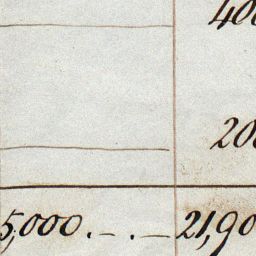 400
200
5,000.-.- 21,90